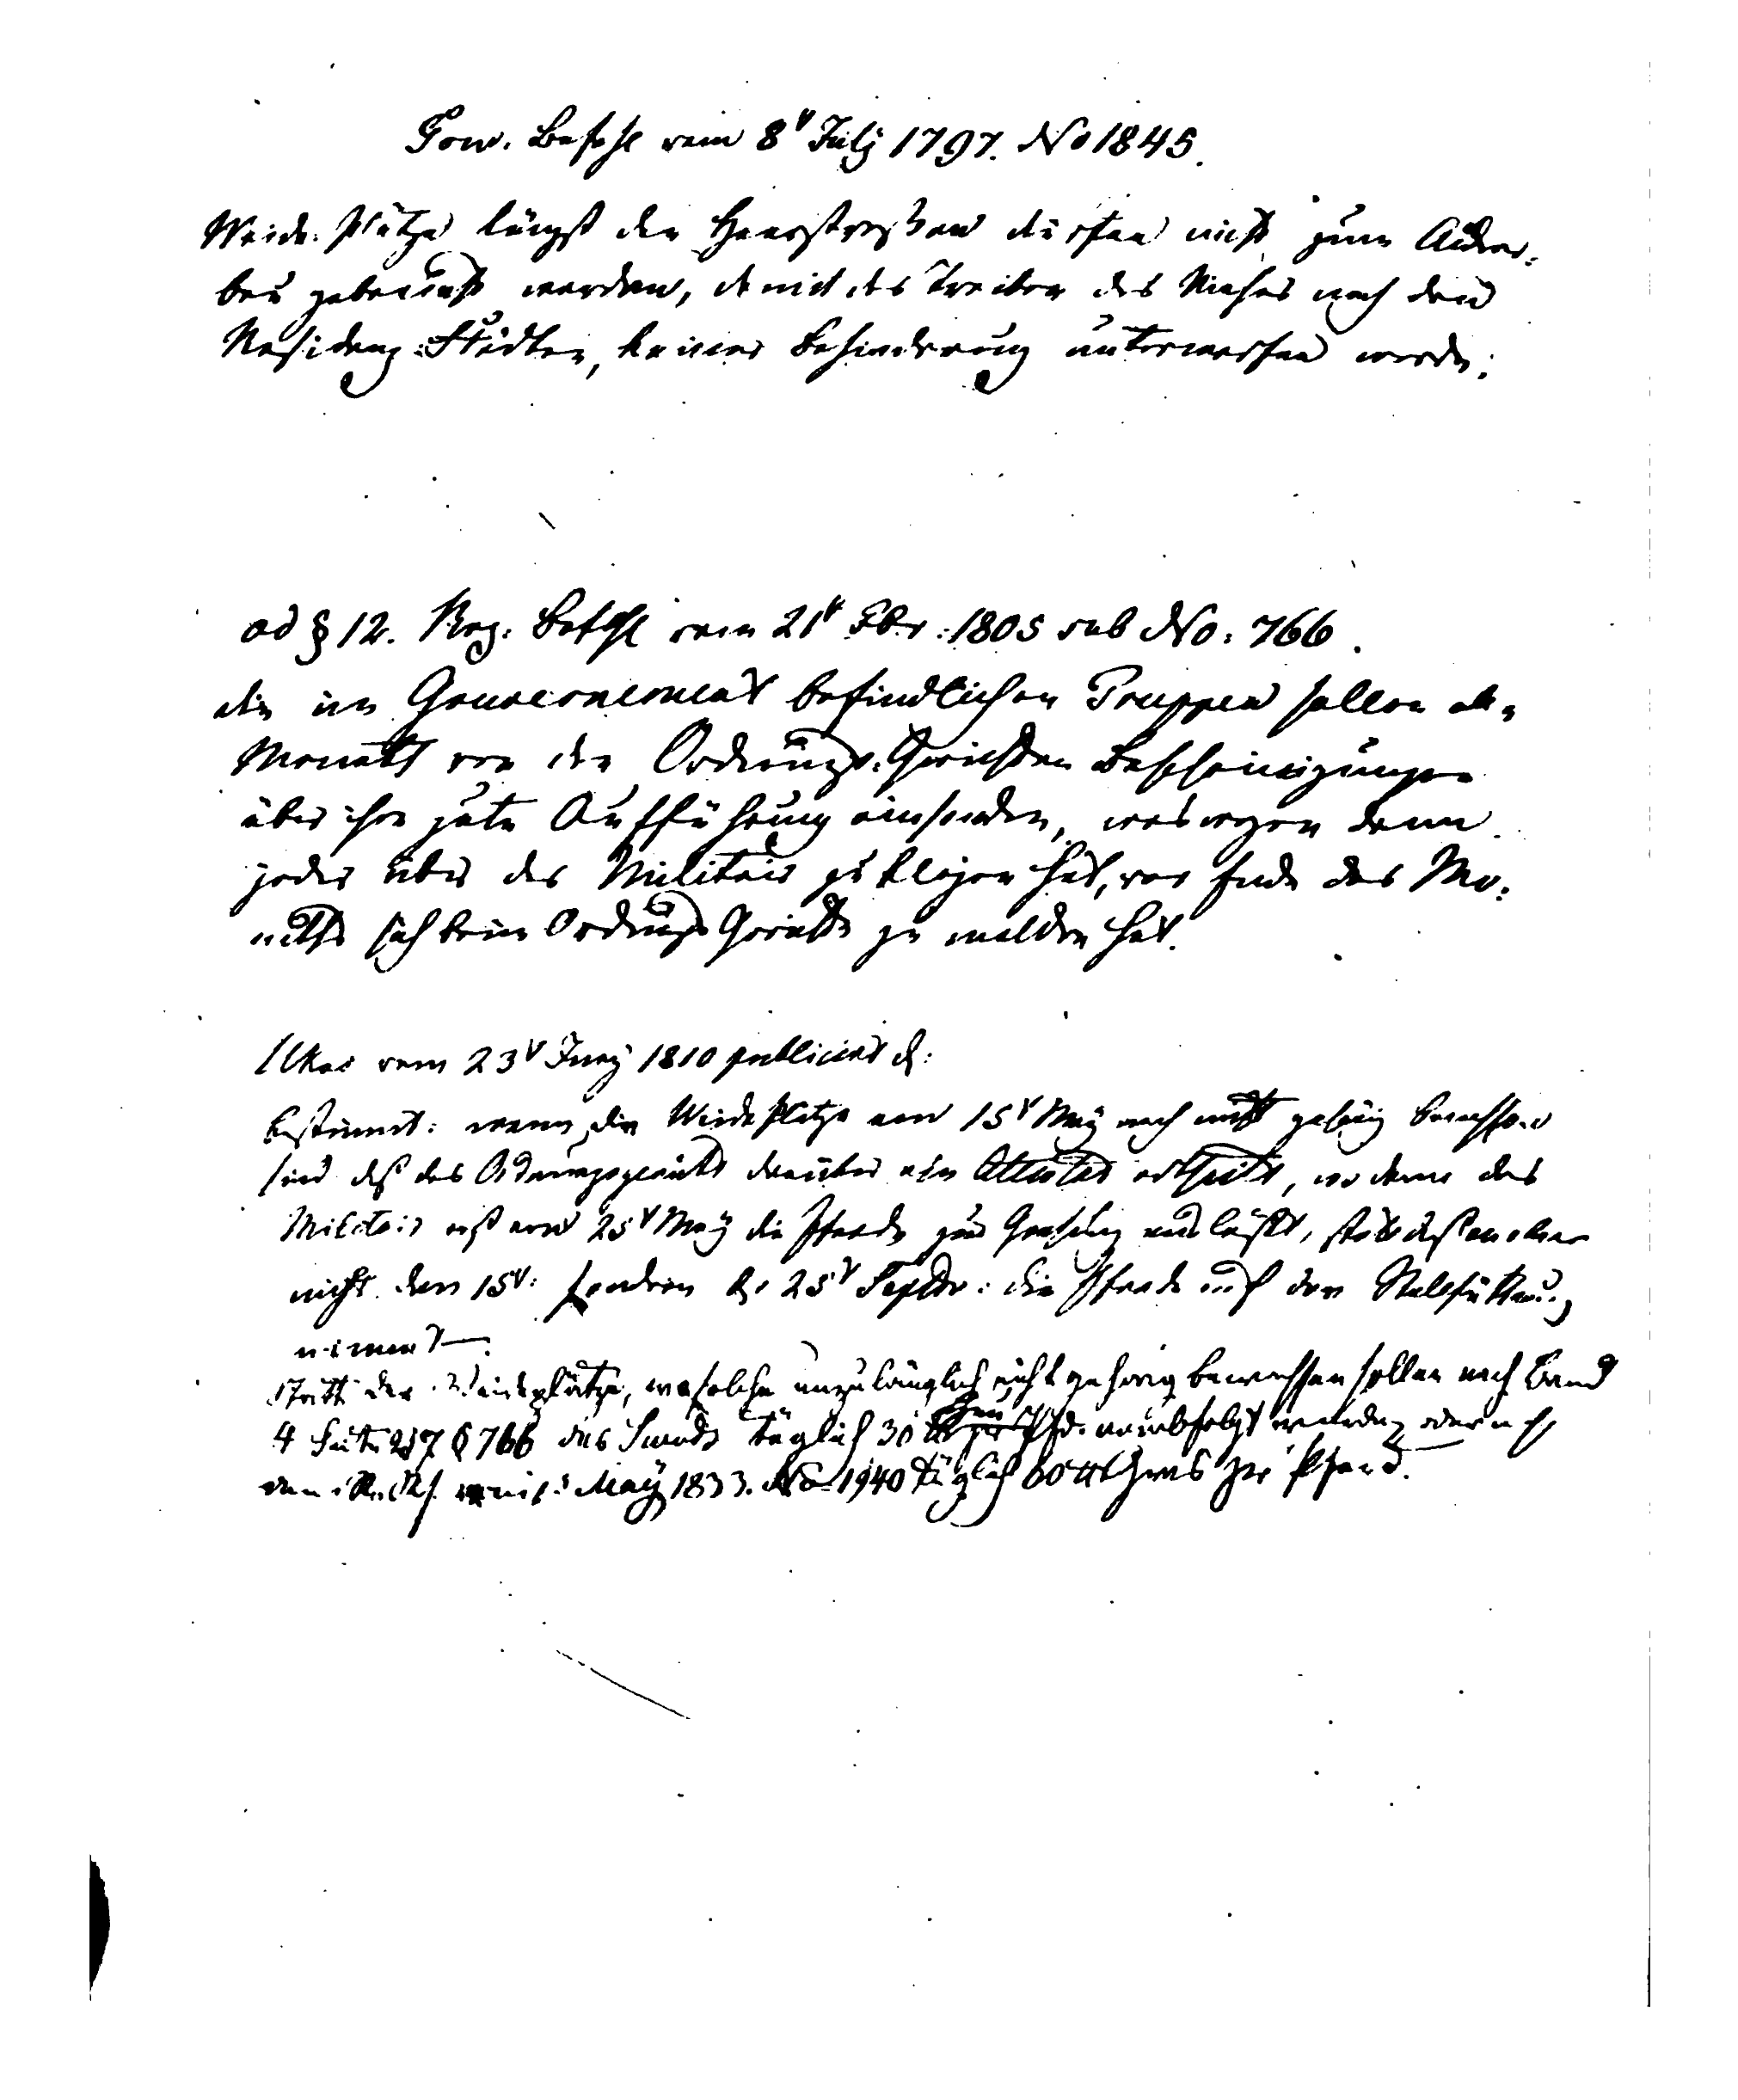 Gouv. Befehl vom 8t July 1797. No 1845.
Weide-Plätze längst den Heerstraßen dürfen nicht zum Acker-
bau gebraucht werden, damit das Treiben des Viehes nach den
Residenz-Städten, keiner Behinderung unterworfen werde.
ad § 12. Reg. Befehl vom 21t Febr: 1805 sub No: 766.
die im Gouvernement befindlichen Truppen sollen alle
Monath von den Ordnungs-Gerichten Bescheinigungen
über ihre gute Aufführung einsenden, weswegen denn
jeder über das Militair zu klagen hat, vor Ende des Mo-
naths sich beim Ordnungs Gericht zu melden hat.
Ukas vom 23t Juny 1810 publicirt d:
bestimmt: wenn die Weideplätze am 15t May noch nicht gehörig bewachsen
sind daß das Ordnungsgericht darüber ein Attestat ertheilt, wo dann das
Militair erst am 25t May die Pferde zur Grasung ausläßt, statt dessen aber
nicht den 15t: sondern d. 25t Septbr: die Pferde auf der Stallfütterung
nimmt.
Statt der Weideplätze, wo solche unzulänglich nicht gehörig bewachsen sollen nach Band
4 Seite 257 § 766 des Swods täglich 30 ℔ Heu pr Pfd. verabfolgt werden, oder nach
dem May 1833. No 1940 täglich 60 ℔ Gras pr Pferd.